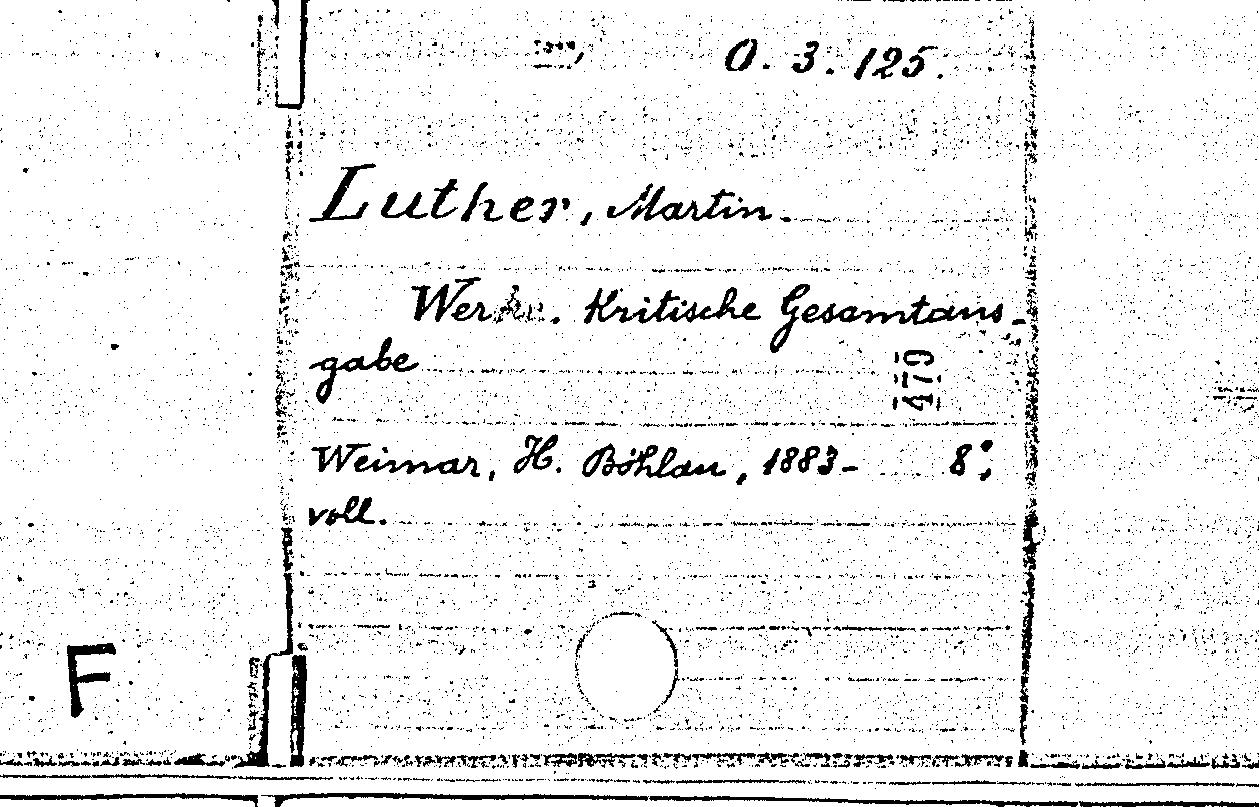 O. 3. 125.
Luther, Martin.
Werke. Kritische Gesamtaus-
gabe
479
Weimar, H. Böhlau, 1883- 8°,
voll.
F